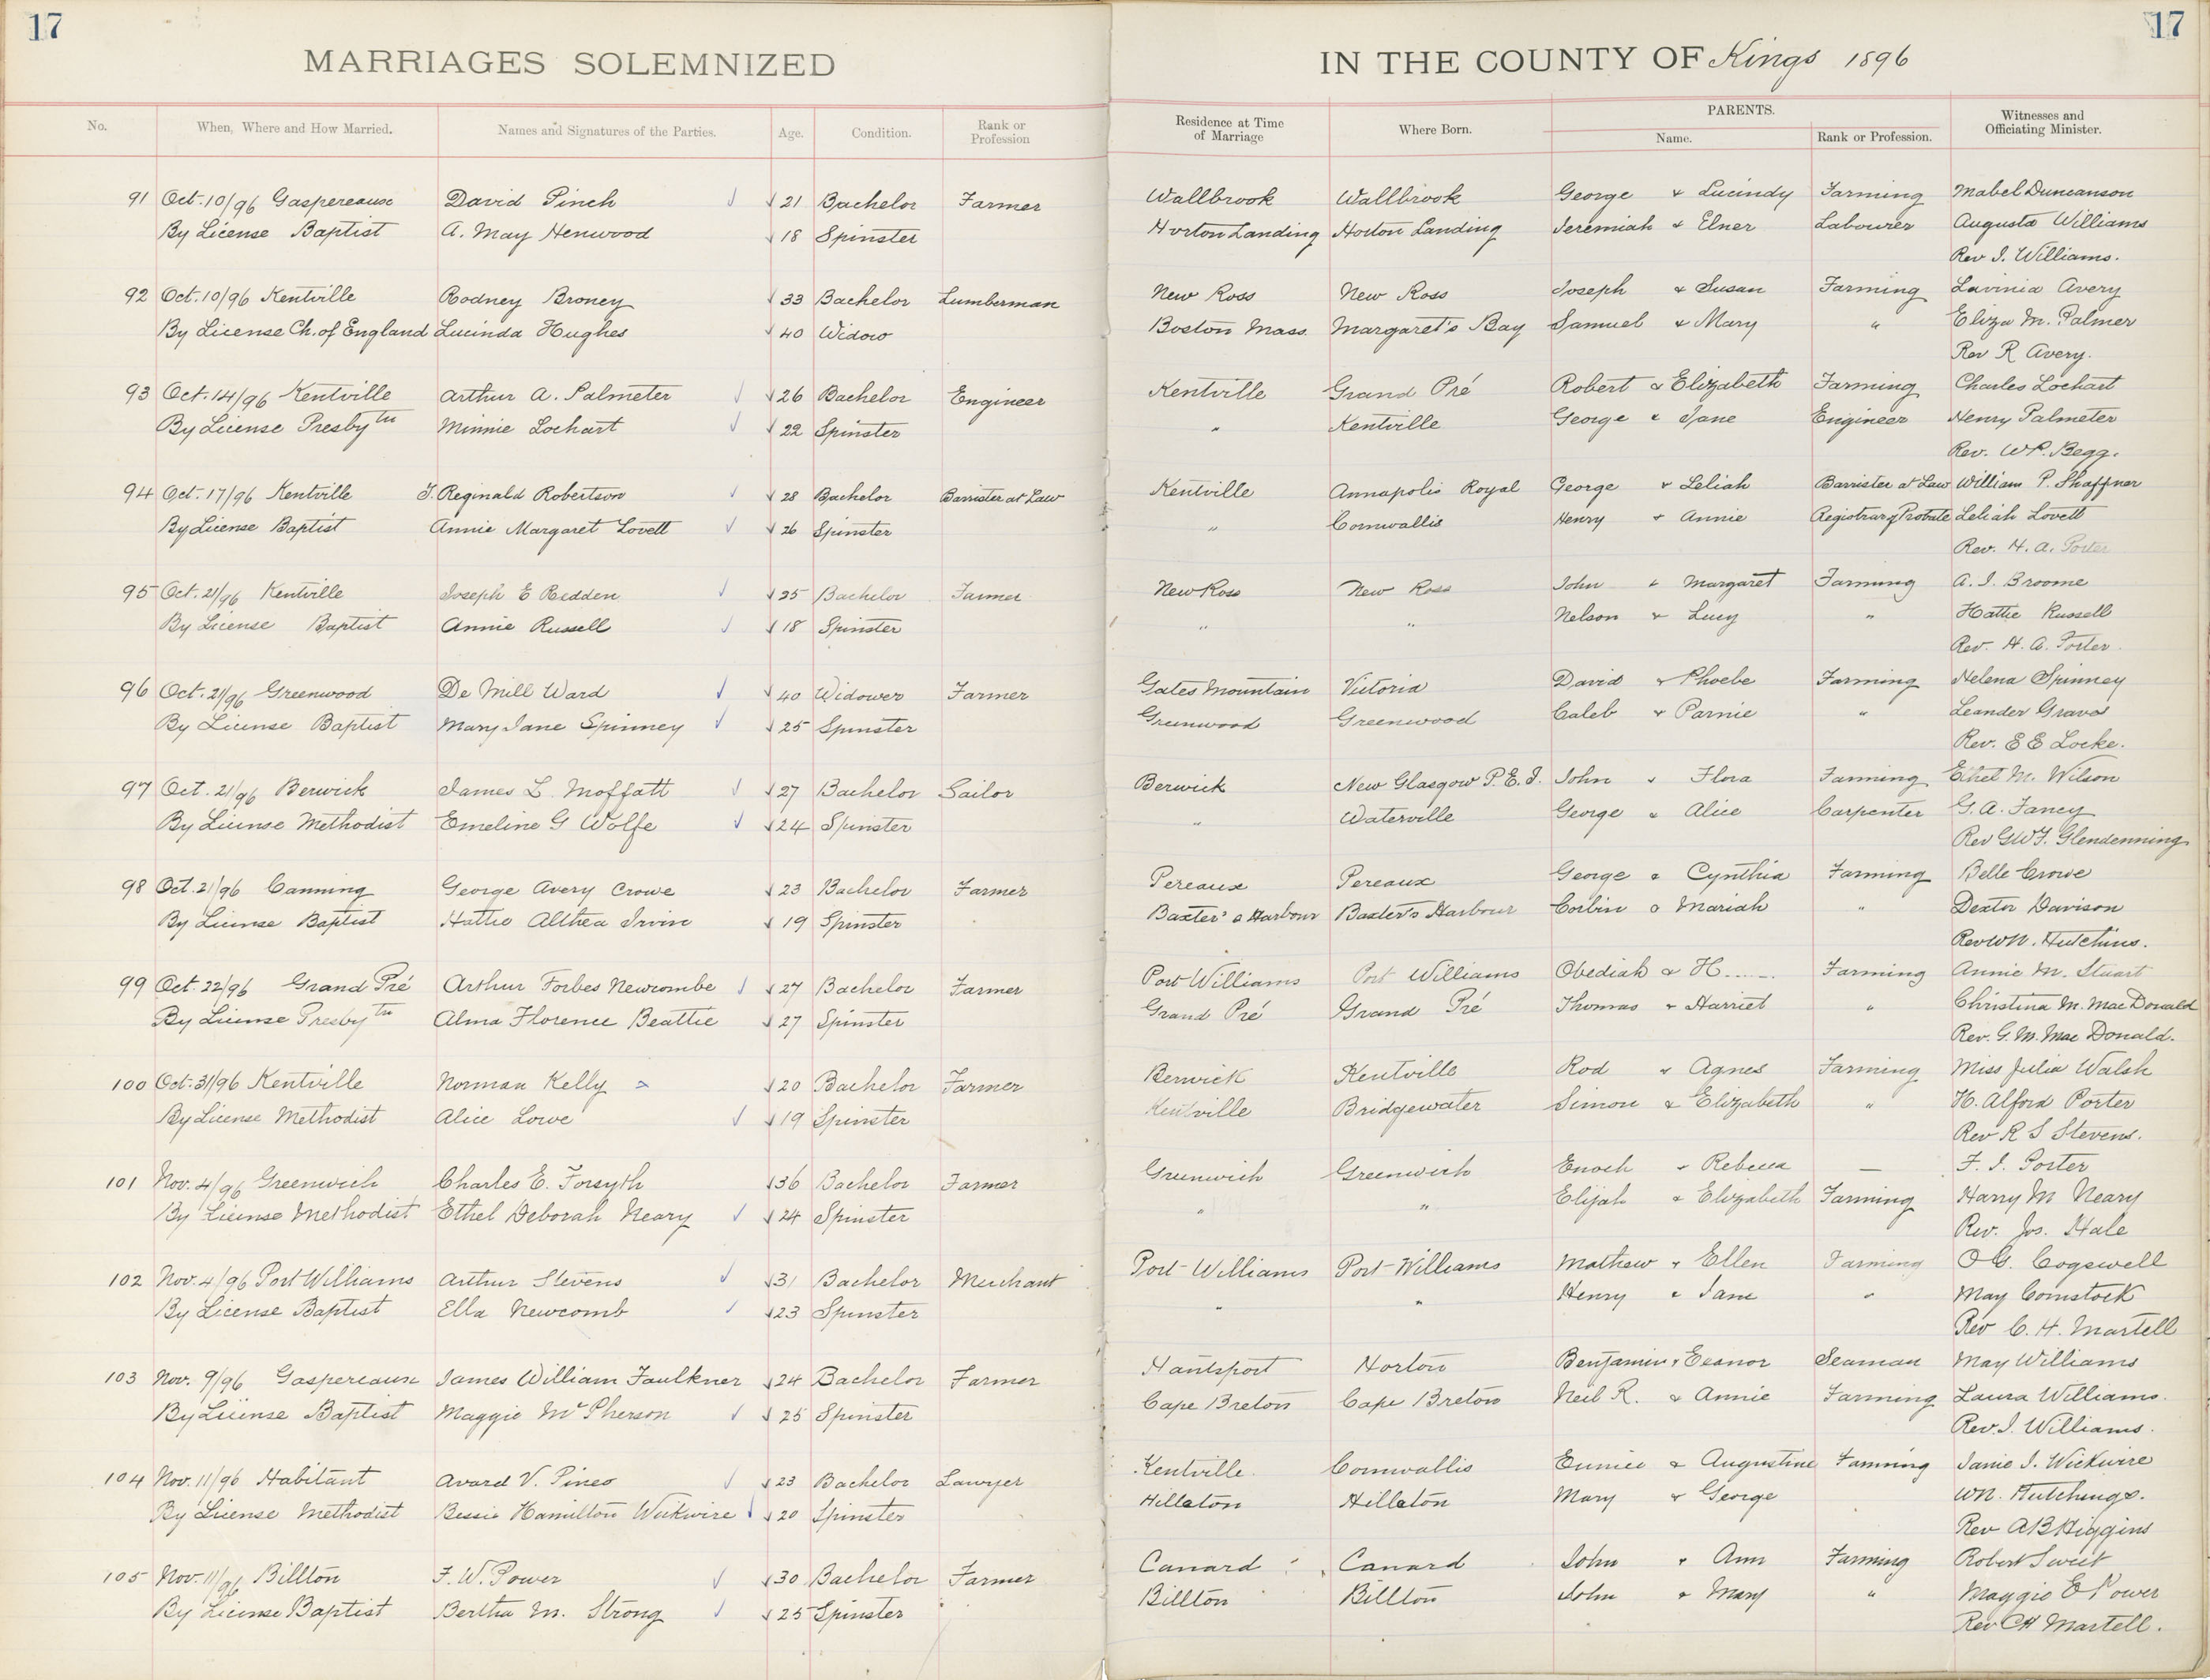 17
17
MARRIAGES SOLEMNIZED IN THE COUNTY OF Kings 1896
No. When, Where and How Married. Names and Signatures of the Parties. Age. Condition. Rank or Profession Residence at Time of Marriage Where Born. PARENTS. Name. Rank or Profession. Witnesses and Officiating Minister.
91 Oct. 10/96 Gaspereaux David Pinch 21 Bachelor Farmer Wallbrook Wallbrook George & Lucindy Farming Mabel Duncanson
By License Baptist A. May Henwood 18 Spinster Horton Landing Horton Landing Jeremiah & Elner Labourer Augusta Williams
Rev I. Williams.
92 Oct. 10/96 Kentville Rodney Broney 33 Bachelor Lumberman New Ross New Ross Joseph & Susan Farming Lavinia Avery
By License Ch. of England Lucinda Hughes 40 Widow Boston Mass. Margaret's Bay Samuel & Mary " Eliza M. Palmer
Rev R Avery.
93 Oct. 14/96 Kentville Arthur A. Palmeter 26 Bachelor Engineer Kentville Grand Pré Robert & Elizabeth Farming Charles Lochart
By License Presbytn Minnie Lochart 22 Spinster " Kentville George & Jane Engineer Henry Palmeter
Rev. W P. Begg.
94 Oct. 17/96 Kentville J. Reginald Robertson 28 Bachelor Barrister at Law Kentville Annapolis Royal George & Leliah Barrister at Law William P. Shaffner
By License Baptist Annie Margaret Lovett 26 Spinster " Cornwallis Henry & Annie Registrar of Probate Leliah Lovett
Rev. H. A. Porter
95 Oct. 21/96 Kentville Joseph E Redden 25 Bachelor Farmer New Ross New Ross John & Margaret Farming A. J. Broome
By License Baptist Annie Russell 18 Spinster " " Nelson & Lucy " Hattie Russell
Rev. H. A. Porter.
96 Oct. 21/96 Greenwood De Mill Ward 40 Widower Farmer Gates Mountain Victoria David & Phoebe Farming Helena Spinney
By License Baptist Mary Jane Spinney 25 Spinster Greenwood Greenwood Caleb & Parnie " Leander Graves
Rev. E E Locke.
97 Oct. 21/96 Berwick James L. Moffatt 27 Bachelor Sailor Berwick New Glasgow P.E.I. John & Flora Farming Ethel M. Wilson
By License Methodist Emeline G Wolfe 24 Spinster " Waterville George & Alice Carpenter G. A. Fancy
Rev G W F. Glendenning
98 Oct. 21/96 Canning George Avery Crowe 23 Bachelor Farmer Pereaux Pereaux George & Cynthia Farming Belle Crowe
By License Baptist Hattie Althea Irvin 19 Spinster Baxter's Harbour Baxter's Harbour Corbin & Mariah " Dexter Davison
Rev W N. Hutchins.
99 Oct. 22/96 Grand Pré Arthur Forbes Newcombe 27 Bachelor Farmer Port Williams Port Williams Obediah & H..... Farming Annie M. Stuart
By License Presbytn Alma Florence Beattie 27 Spinster Grand Pré Grand Pré Thomas & Harriet " Christina M. MacDonald
Rev. G. M. Mac Donald.
100 Oct. 31/96 Kentville Norman Kelly 20 Bachelor Farmer Berwick Kentville Rod & Agnes Farming Miss Julia Walsh
By License Methodist Alice Lowe 19 Spinster Kentville Bridgewater Simon & Elizabeth " H. Alford Porter
Rev R S Stevens.
101 Nov. 4/96 Greenwich Charles E. Forsyth 36 Bachelor Farmer Greenwich Greenwich Enoch & Rebecca — F. J. Porter
By License Methodist Ethel Deborah Neary 24 Spinster " " Elijah & Elizabeth Farming Harry M Neary
Rev. Jos. Hale
102 Nov. 4/96 Port Williams Arthur Stevens 31 Bachelor Merchant Port Williams Port Williams Mathew & Ellen Farming O G. Cogswell
By License Baptist Ella Newcomb 23 Spinster " " Henry & Jane " May Comstock
Rev C. H. Martell
103 Nov. 9/96 Gaspereaux James William Faulkner 24 Bachelor Farmer Hantsport Horton Benjamin & Eeanor Seaman May Williams
By License Baptist Maggie McPherson 25 Spinster Cape Breton Cape Breton Neil R. & Annie Farming Laura Williams.
Rev. I. Williams.
104 Nov. 11/96 Habitant Avard V. Pineo 23 Bachelor Lawyer Kentville Cornwallis Eunice & Augustine Farming Janie I. Wickwire
By License Methodist Bessie Hamilton Wickwire 20 Spinster Hillaton Hillaton Mary & George WN. Hutchings.
Rev A B Higgins
105 Nov. 11/96 Billton F. W. Power 30 Bachelor Farmer Canard Canard John & Ann Farming Robert Sweet
By License Baptist Bertha M. Strong 25 Spinster Billton Billton John & Mary " Maggie E Power
Rev C H Martell.